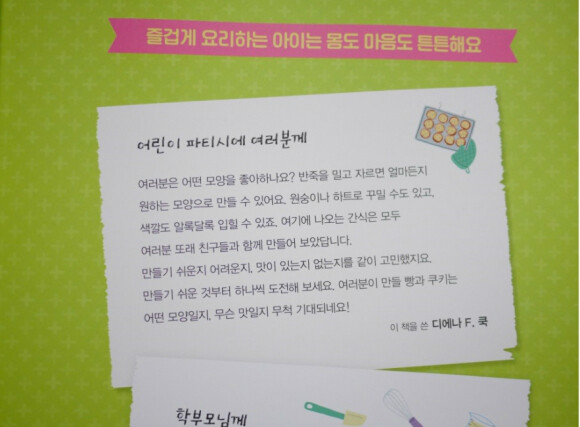 즐겁게 요리하는 아이는 몽도 마음도 튼튼해요
어린이 파티시에 여러분께
여러분은 어떤 모양을 좋아하나요? 반죽을 밀고 자르면 얼마든지
원하는 모양으로 만들 수 있어요. 원숭이나 하트로 꾸밀 수도 있고,
색깔도 알록달록 입힐 수 있죠. 여기에 나오는 간식은 모두
여러분 또래 친구들과 함께 만들어 보았답니다.
만들기 쉬운지 어려운지, 맛이 있는지 없는지를 같이 고민했지요.
만들기 쉬운 것부터 하나씩 도전해 보세요. 여러분이 만들 빵과 쿠키는
어떤 모양일지, 무슨 맛일지 무척 기대되네요!
이 책을 쓴 디에나 F. 쿡
학부모님께